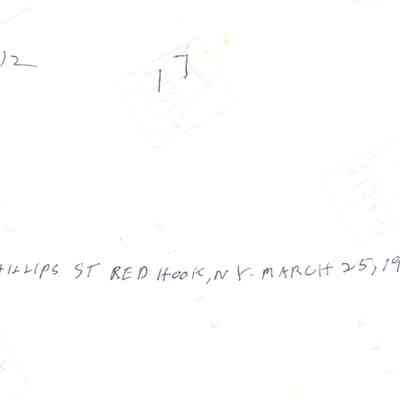 12
17
HILLIPS ST RED HOOK, NY. MARCH 25, 19